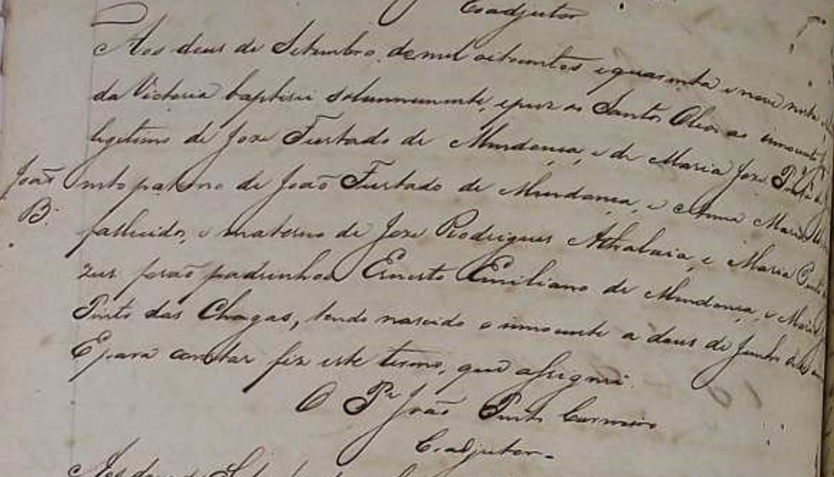 Coadjutor
Aos deus de Setembro de mil oitocentos e quarenta e nove nesta
da Victoria baptisei solemnemente, e puz os Santos Oleos ao innocente
legitimo de Joze Furtado de Mendonça, e de Maria Joze
João neto paterno de João Furtado de Mendonça, e Anna Maria
B.
fallecidos, e materno de Joze Rodrigues Athalaia, e Maria
zus forão padrinhos Ernesto Emiliano de Mendonça, e Maria
Pinto das Chagas, tendo nascido o innocente a deus de Junho
E para constar fiz este termo, que assignei.
O Pe João Pinto Carneiro
Coadjutor.
Aos deus de Setembro